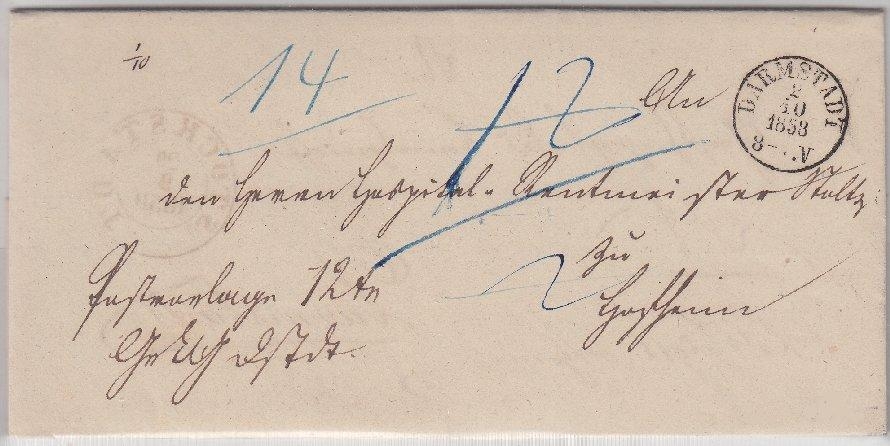 1/10
14
12
An
DARMSTADT
2
10
1853
8-..V
den Herrn Hospital-Rentmeister Stoltz
zu
Hofheim
Postvorlage 12 kr
2